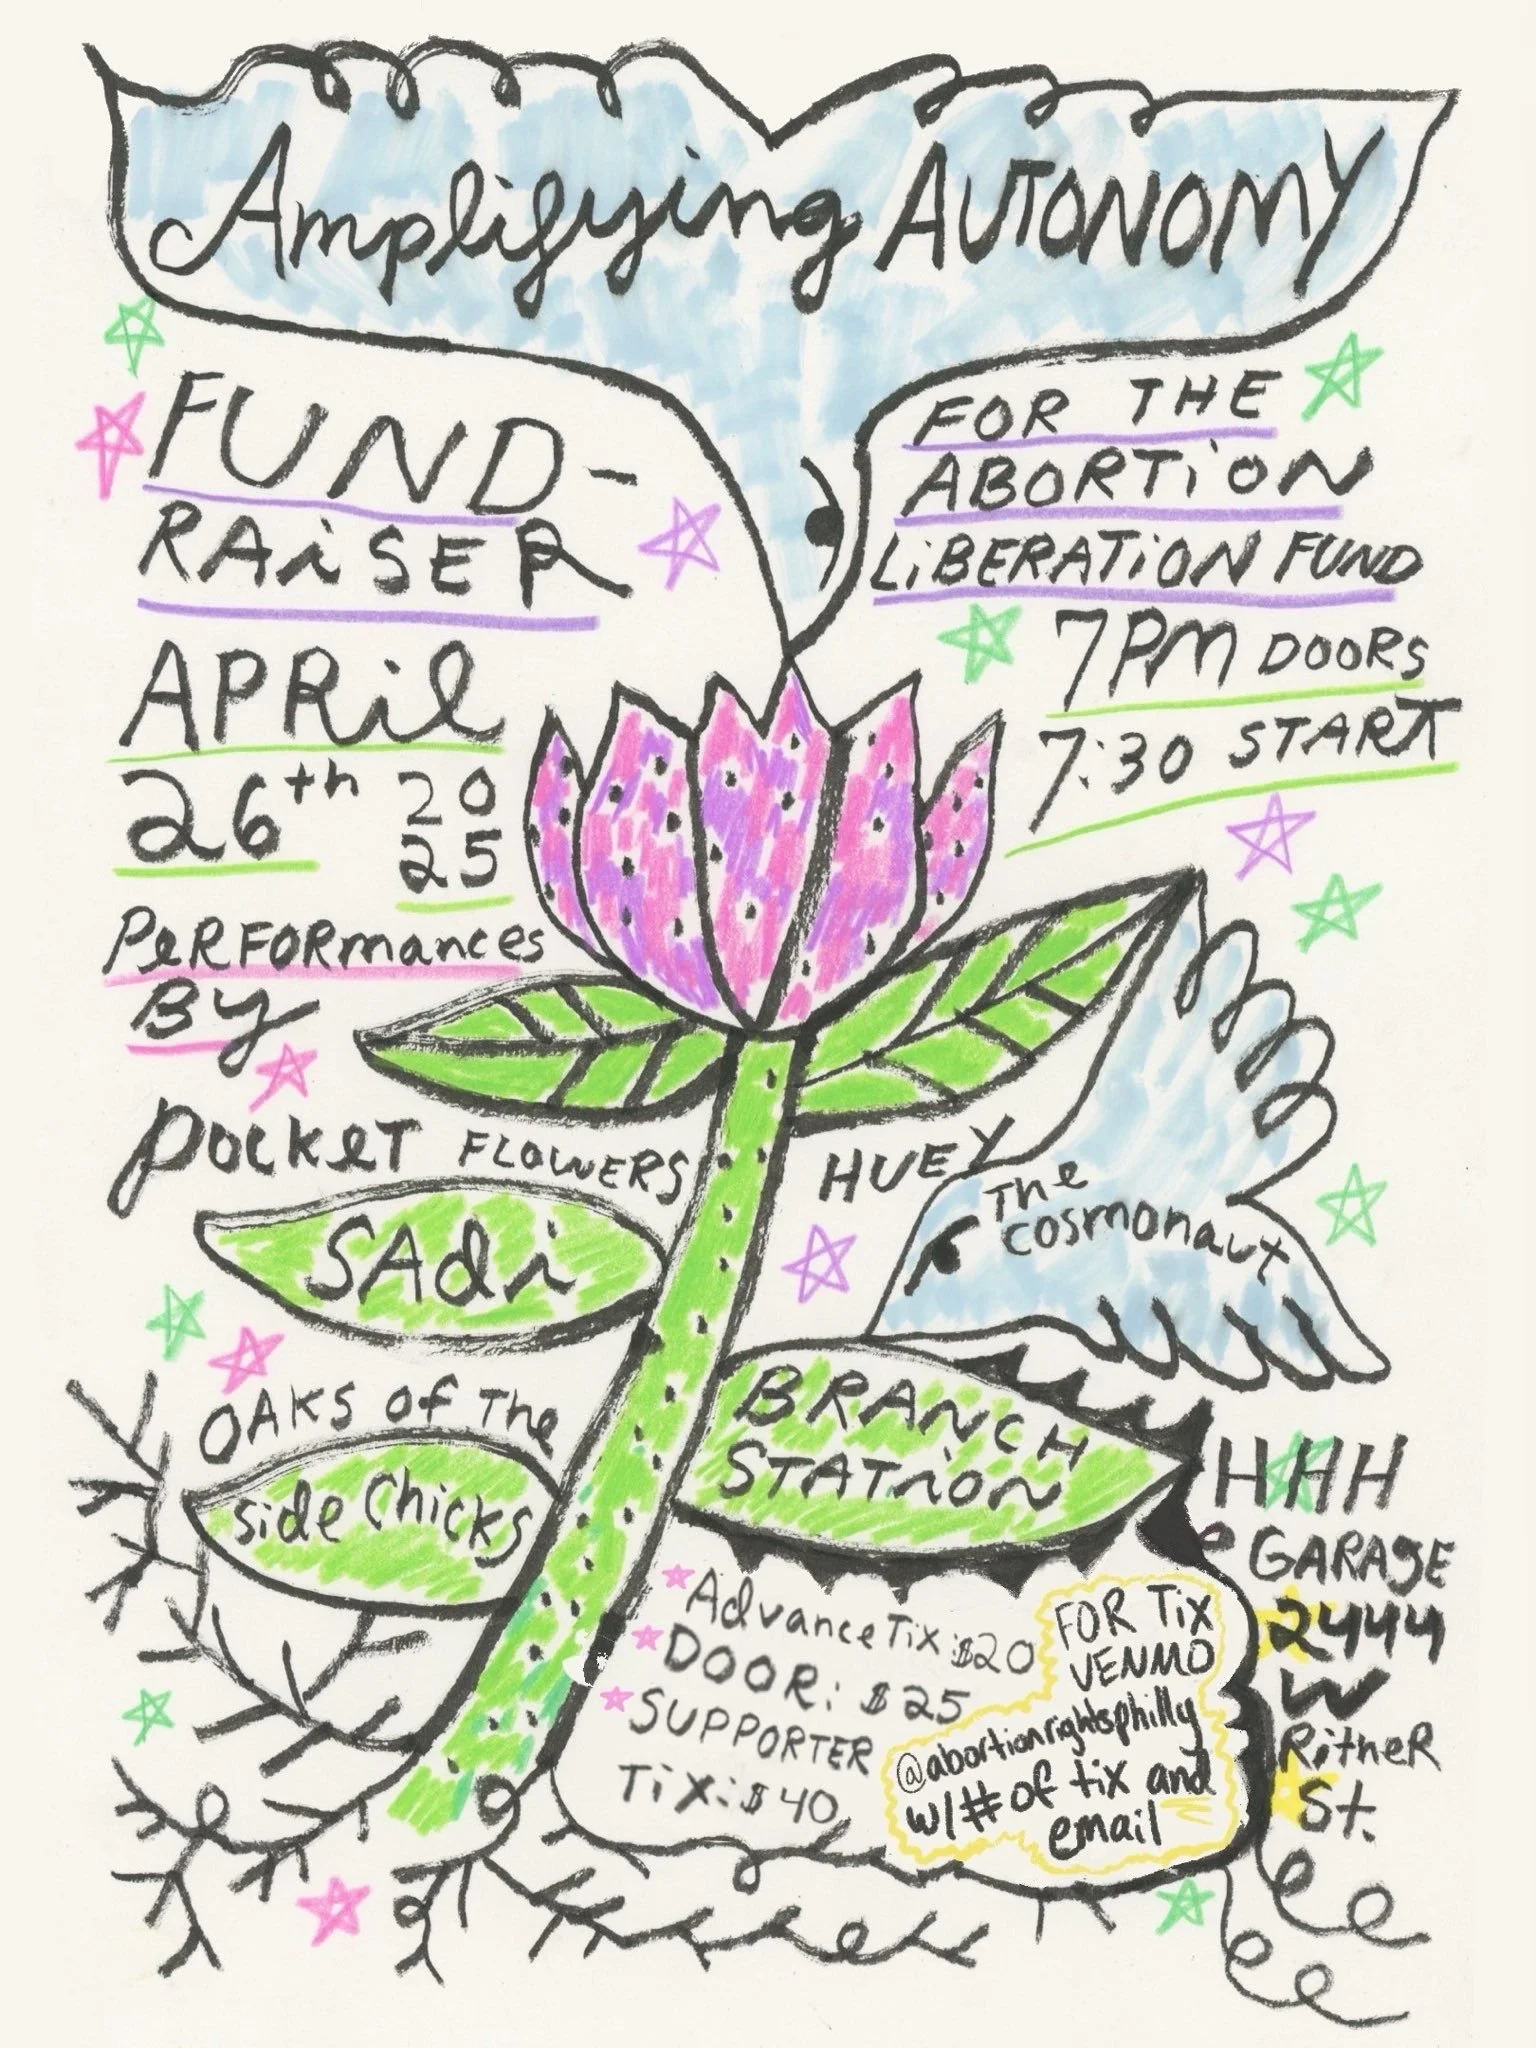 Amplifying AUTONOMY
FUND-
RAiSER
FOR THE
ABORTiON
LiBERATiON FUND
7PM DOORS
7:30 START
APRil
26th 20
25
PeRFORmances
By
Pocket FLOWERS
SAdi
OAKS of The
side Chicks
HUEY
The
cosmonaut
BRANCH
STATiON
HHH
GARAGE
2444
W
RitneR
St.
Advance Tix: $20
DOOR: $25
SUPPORTER
TiX: $40
FOR Tix
VENMO
@abortionrightsphilly
w/ # of tix and
email